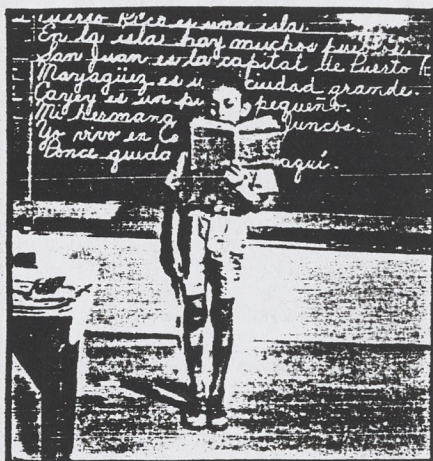 Puerto Rico es una isla.
En la isla hay muchos pueblos.
San Juan es la capital de Puerto
Mayagüez es ciudad grande.
Cayey es un pequeño.
Mi hermana Juncos.
Yo vivo en
Ponce queda aquí.